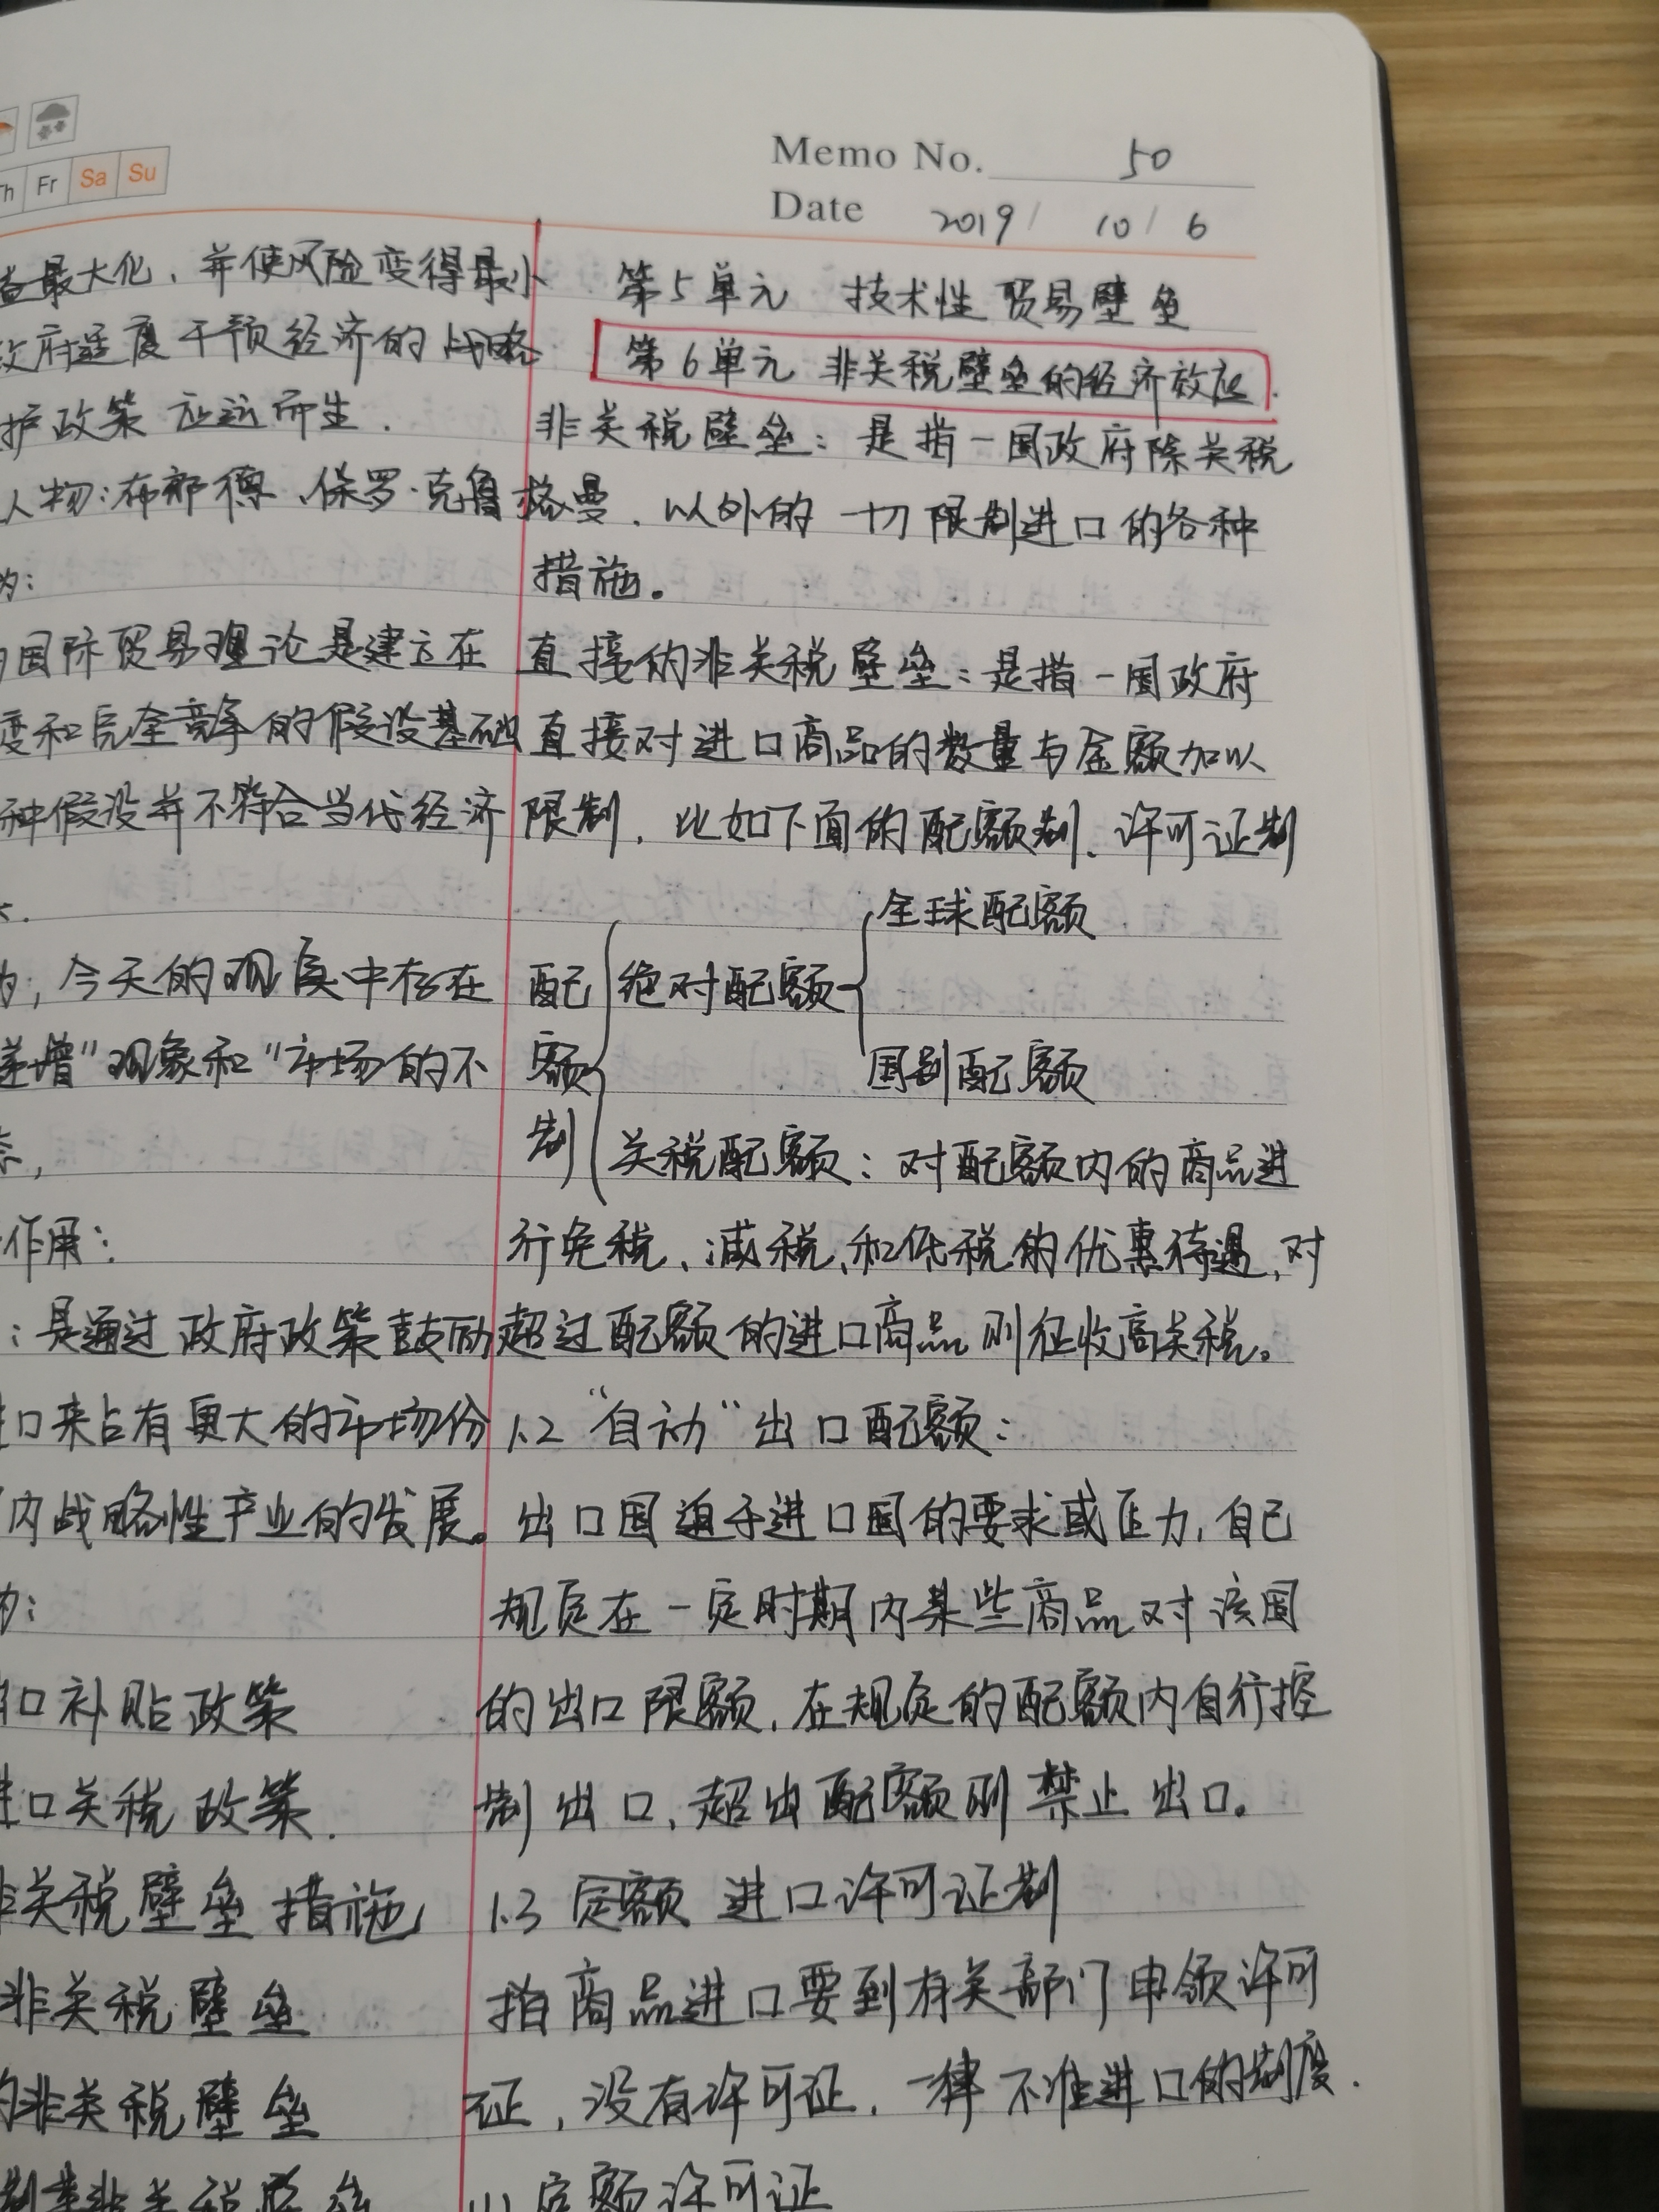 Th Fr Sa Su
Memo No. 50
Date 2019/ 10/ 6
益最大化，并使风险变得最小
政府适度干预经济的战略
护政策应运而生.
人物:布郎德、保罗·克鲁格曼.
为:
国际贸易理论是建立在
变和完全竞争的假设基础
种假设并不符合当代经济
为，今天的现实中存在
递增"现象和"市场的不
作用:
:是通过政府政策鼓励
口来占有更大的市场份
内战略性产业的发展。
为:
口补贴政策
进口关税政策.
非关税壁垒措施
非关税壁垒
的非关税壁垒
第5单元 技术性贸易壁垒
第6单元 非关税壁垒的经济效应.
非关税壁垒:是指一国政府除关税
以外的一切限制进口的各种
措施。
直接的非关税壁垒:是指一国政府
直接对进口商品的数量与金额加以
限制，比如下面的配额制、许可证制
全球配额
配额制 绝对配额
国别配额
关税配额:对配额内的商品进
行免税、减税、和低税的优惠待遇，对
超过配额的进口商品则征收高关税。
1.2 "自动"出口配额:
出口国迫于进口国的要求或压力，自己
规定在一定时期内某些商品对该国
的出口限额，在规定的配额内自行控
制出口，超出配额则禁止出口。
1.3 定额进口许可证制
指商品进口要到有关部门申领许可
证，没有许可证，一律不准进口的制度.
(1)定额许可证